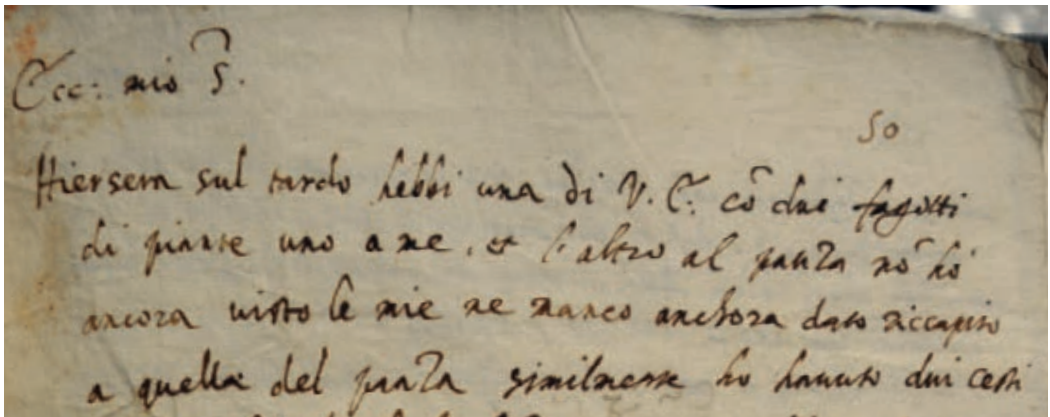 Ecc: mio S.
50
Hiersera sul tardo hebbi una di V. E. cō dui fagotti
di piante uno a me, et l'altro al panza nō ho
ancora visto le mie ne manco anchora dato riccapito
a quella del panza similmente ho havuto dui cesti